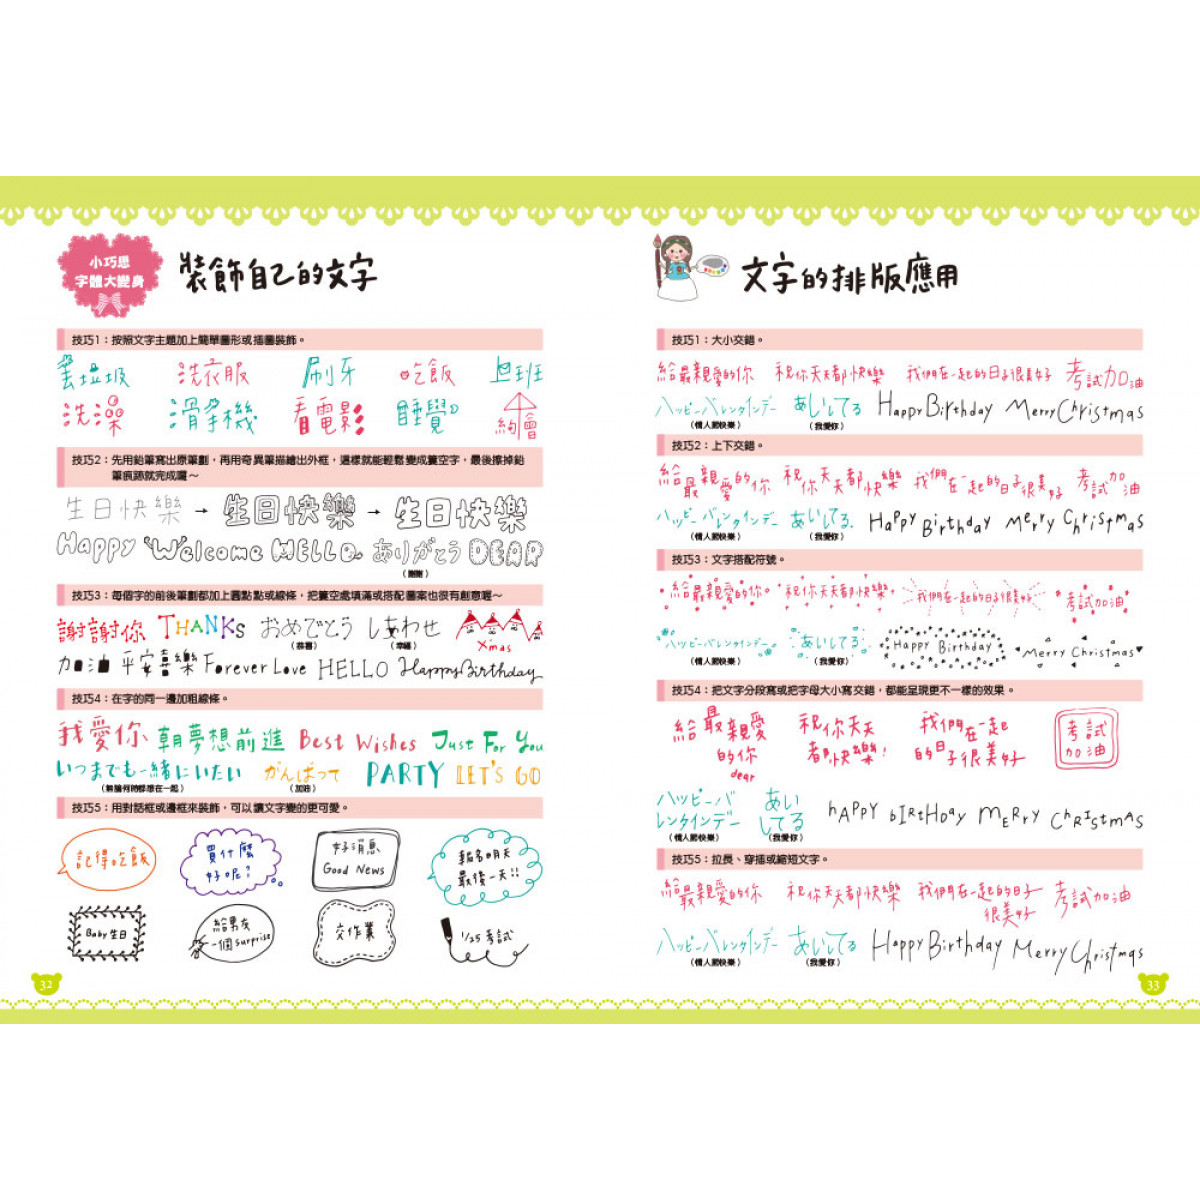 小巧思
字體大變身
裝飾自己的文字
技巧1：按照文字主題加上簡單圖形或插圖裝飾。
丟垃圾 洗衣服 刷牙 吃飯 上班
洗澡 滑手機 看電影 睡覺 約會
技巧2：先用鉛筆寫出原筆劃，再用奇異筆描繪出外框，這樣就能輕鬆變成簍空字，最後擦掉鉛
筆痕跡就完成囉～
生日快樂 → 生日快樂 → 生日快樂
Happy Welcome HELLO ありがとう DEAR
(謝謝)
技巧3：每個字的前後筆劃都加上圓點點或線條，把簍空處填滿或搭配圖案也很有創意喔～
謝謝你 THANKS おめでとう しあわせ Xmas
(恭喜) (幸福)
加油 平安喜樂 Forever Love HELLO Happy Birthday
技巧4：在字的同一邊加粗線條。
我愛你 朝夢想前進 Best Wishes Just For You
いつまでも一緒にいたい がんばって PARTY LET'S GO
(無論何時都想在一起) (加油)
技巧5：用對話框或邊框來裝飾，可以讓文字變的更可愛。
記得吃飯
買什麼
好呢？
好消息
Good News
報名明天
最後一天!!
Baby生日
給男友
一個surprise
交作業
1/25考試
32
文字的排版應用
技巧1：大小交錯。
給最親愛的你 祝你天天都快樂 我們在一起的日子很美好 考試加油
ハッピーバレンタインデー あいしてる Happy Birthday Merry Christmas
(情人節快樂) (我愛你)
技巧2：上下交錯。
給最親愛的你 祝你天天都快樂 我們在一起的日子很美好 考試加油
ハッピーバレンタインデー あいしてる Happy Birthday Merry Christmas
(情人節快樂) (我愛你)
技巧3：文字搭配符號。
給最親愛的你 祝你天天都快樂 我們在一起的日子很美好 考試加油
ハッピーバレンタインデー あいしてる Happy Birthday Merry Christmas
(情人節快樂) (我愛你)
技巧4：把文字分段寫或把字母大小寫交錯，都能呈現更不一樣的效果。
給最親愛
的你
dear
祝你天天
都快樂！
我們在一起
的日子很美好
考試
加油
ハッピーバ
レンタインデー
(情人節快樂)
あい
してる
(我愛你)
hAPPY bIRtHday MERRy ChRIStmAS
技巧5：拉長、穿插或縮短文字。
給最親愛的你 祝你天天都快樂 我們在一起的日子很美好 考試加油
ハッピーバレンタインデー あいしてる Happy Birthday Merry Christmas
(情人節快樂) (我愛你)
33